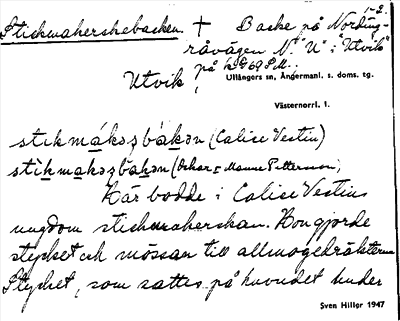 1-2.
Stickmakerskebacken + Backe på Nording-
råvägen N. "U" i "Utvik"
Utvik, på
Ullångers sn, Ångermanl. s. doms. tg.
Västernorrl. l.
(Calise Vestin)
(Oskar o Manne Pettersson)
Här bodde i Calise Vestins
ungdom stickmakerskan. Hon gjorde
stycket och mössan till allmogedräkterna
Stycket, som sattes på huvudet under
Sven Hillgr 1947